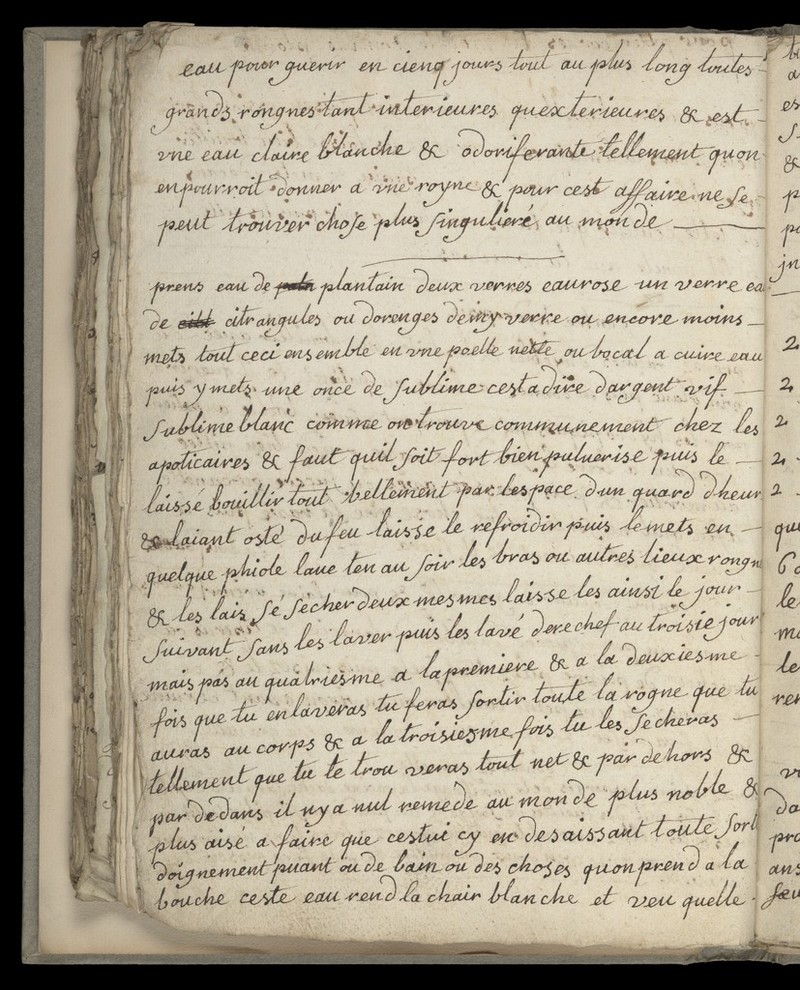 eau pour guerir en cienq jours tout au plus long toutes
grands rongnes tant interieures quexterieures & est
vne eau claire blanche & odoriferante tellement quon
enpourroit donner a vne royne & pour cest affaire ne se
peut trouver chose plus singulieré au monde
prens eau de plantain deux verres eaurose un verre ea
de citrangules ou dorenges demy verre ou encore moins
mets tout ceci ensemble en vne poelle nette ou bocal a cuire eau
puis y mets une once de sublime cestadire dargent vif
sublime blanc comme on trouve communement chez les
apoticaires & faut quil soit fort bien puluerise puis le
laissé bouillir tout bellement par lespace dun quard dheur
& laiant osté du feu laisse le refroidir puis lemets en
quelque phiole laue ten au soir les bras ou autres lieux rongn
& les lais sé sécher deux mesmes laisse les ainsi le jour
suivant sans les laver puis les lavé derechef au troisie jour
mais pas au quatriesme a lapremiere & a la deuxiesme
fois que tu enlaveras tu feras sortir toute la rogne que tu
auras au corps & a la troisiesme fois tu les secheras
tellement que tu te trou veras tout net & par dehors &
par dedans il nya nul remede au monde plus noble &
plus aisé a faire que cestui cy en desaissant toute sort
doignement puant ou de bain ou des choses quonprend a la
bouche ceste eau rend la chair blanche et veu quelle